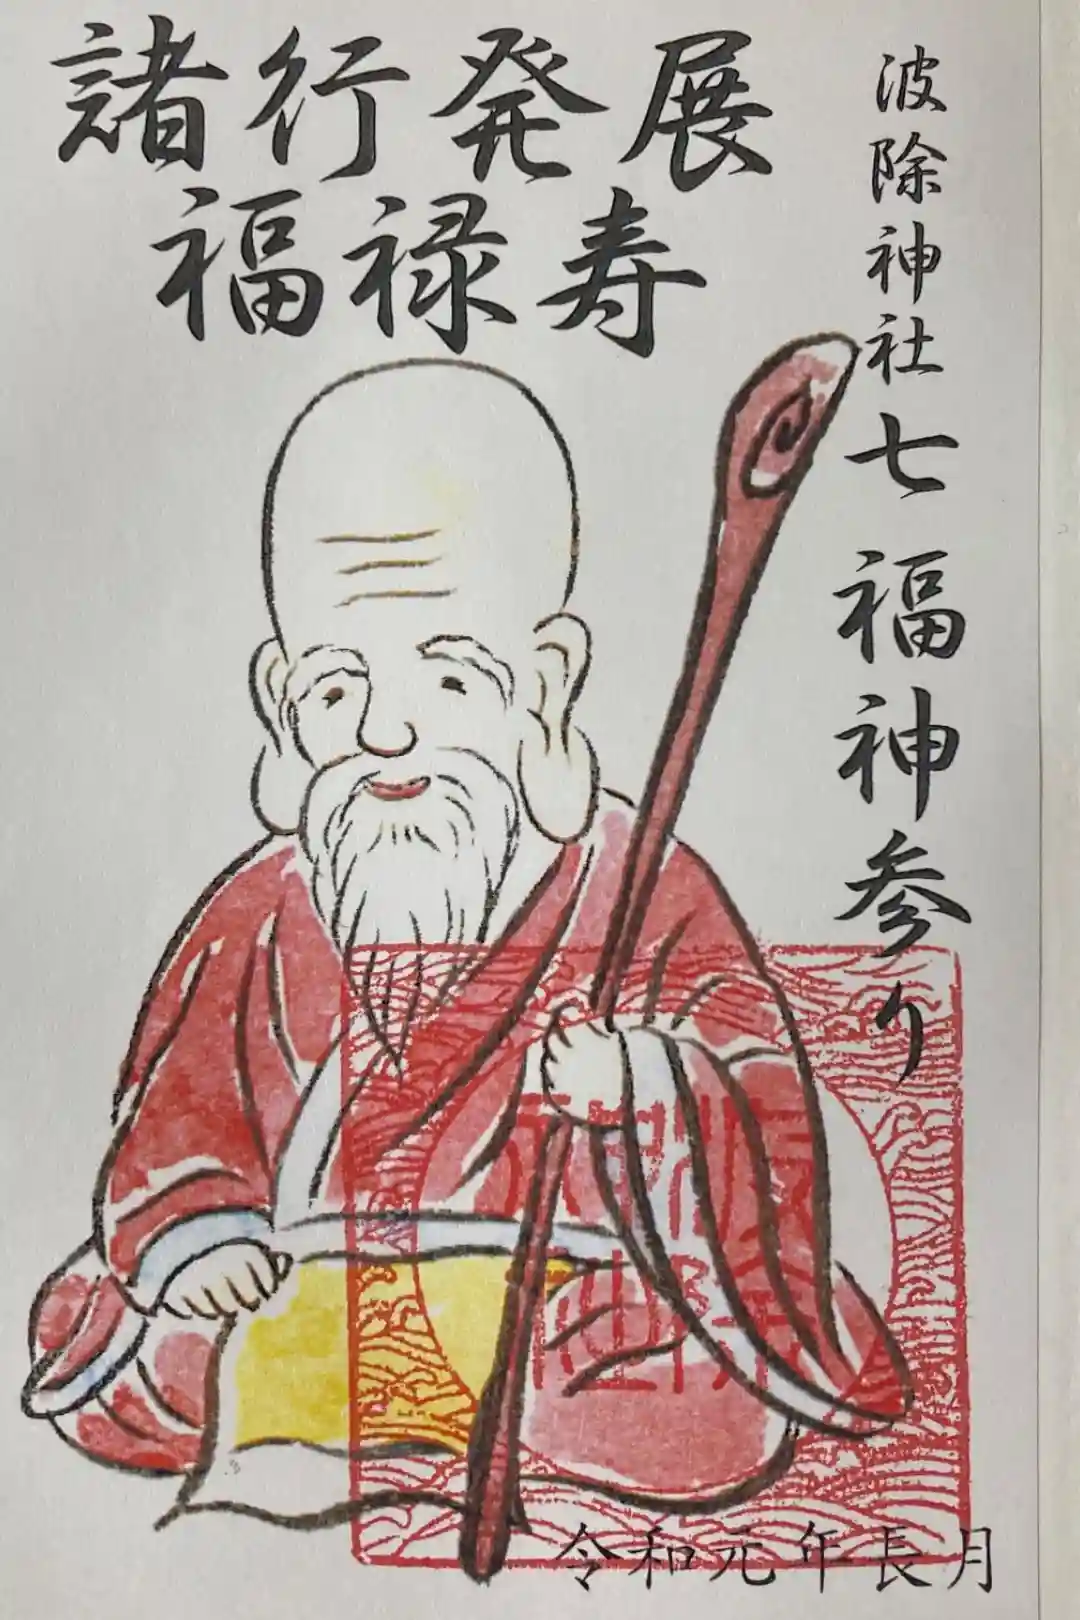 諸行発展
福禄寿
波除神社 七福神参り
波除神社
令和元年長月